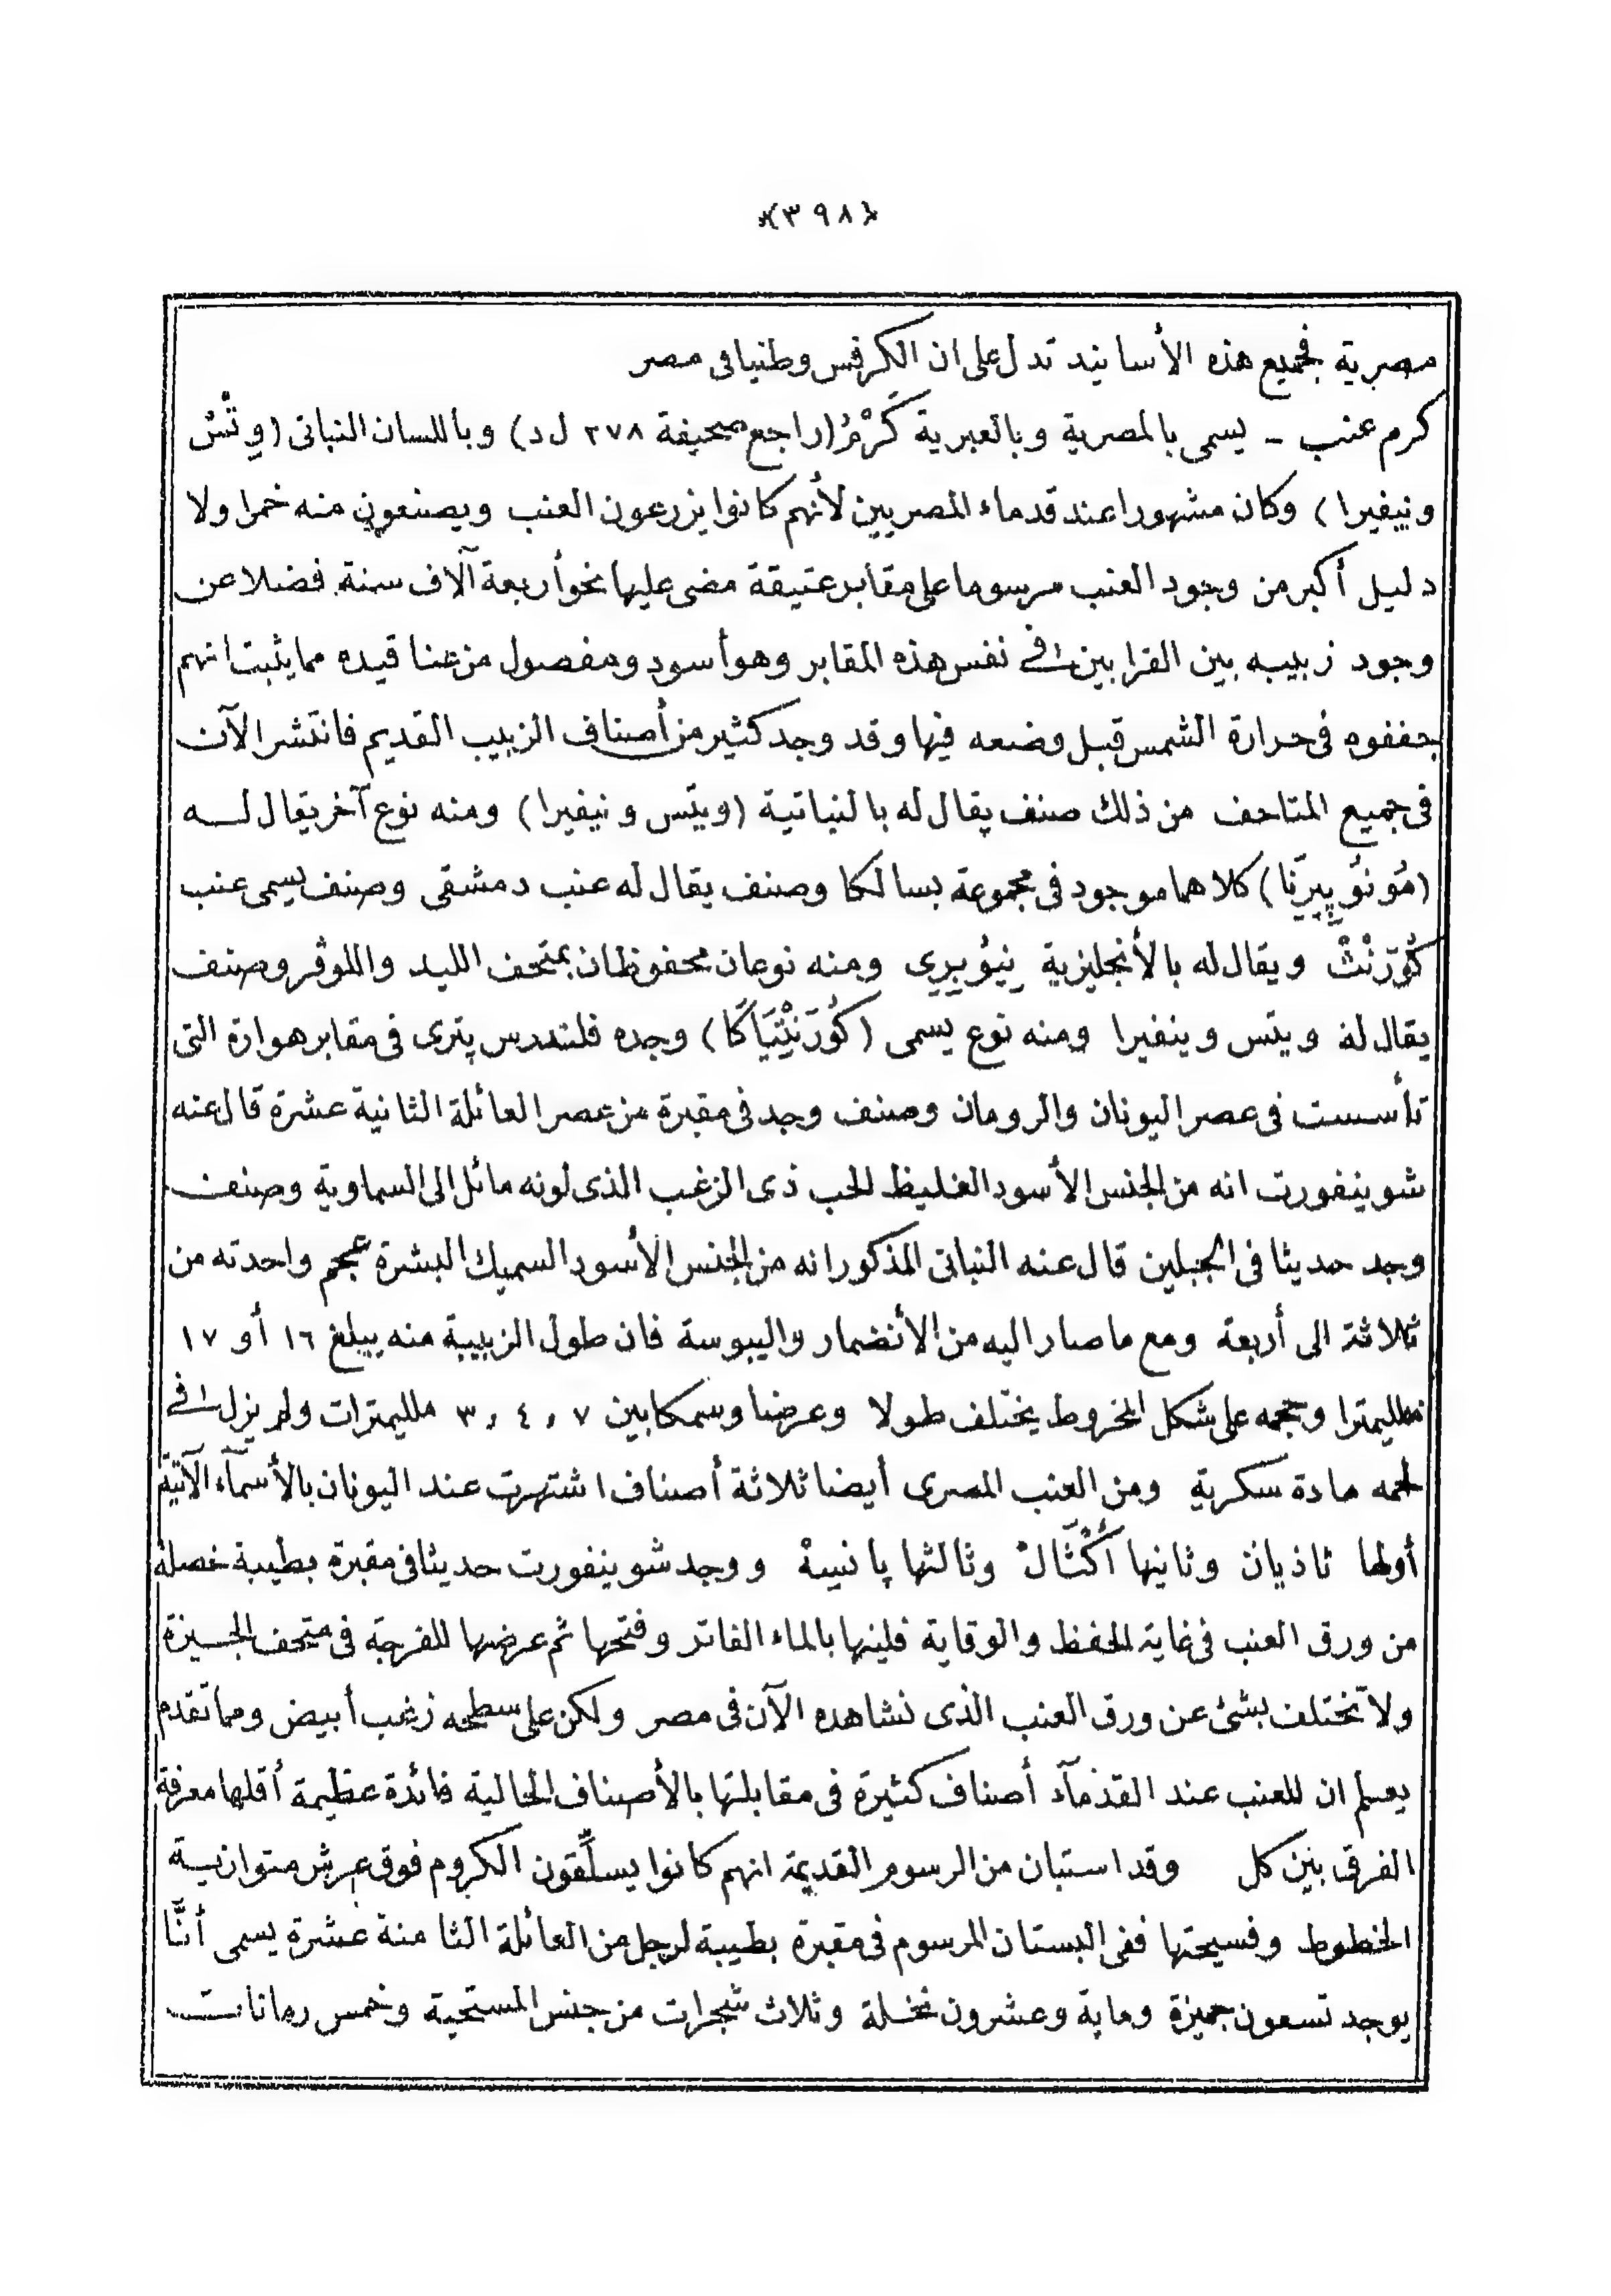 ﴿٣٩٨﴾
مصرية فجميع هذه الأسانيد تدل على ان الكرفس وطنيا فى مصر
كرم عنب - يسمى بالمصرية وبالعبرية كَرْمُ (راجع صحيفة ٢٧٨ ل د) وباللسان النباتى (وِتْسْ
ونييفيرا) وكان مشهورا عند قدماء المصريين لأنهم كانوا يزرعون العنب ويصنعون منه خمرا ولا
دليل أكبر من وجود العنب مرسوما على مقابر عتيقة مضى عليها نحو أربعة آلاف سنة فضلا عن
وجود زبيبه بين القرابين فى نفس هذه المقابر وهو أسود ومفصول من عناقيده مما يثبت انهم
جففوه فى حرارة الشمس قبل وضعه فيها وقد وجد كثير من أصناف الزبيب القديم فانتشر الآن
فى جميع المتاحف من ذلك صنف يقال له بالنباتية (ويتس ونيفيرا) ومنه نوع آخر يقال له
(مُونُوپِيرِنَّا) كلاهما موجود فى مجموعة بسالكا وصنف يقال له عنب دمشقى وصنف يسمى عنب
كُورَنْثْ ويقال له بالأنجليزية نِيُوبِرِى ومنه نوعان محفوظان بمتحف الليد واللوڤر وصنف
يقال له ويتس وينفيرا ومنه نوع يسمى (كُورَنْتِيَاكَا) وجده فلندرس پترى فى مقابر هوارة التى
تأسست فى عصر اليونان والرومان وصنف وجد فى مقبرة من عصر العائلة الثانية عشرة قال عنه
شوينفورت انه من الجنس الأسود الغليظ الحب ذى الزغب الذى لونه مائل الى السماوية وصنف
وجد حديثا فى الجبلين قال عنه النباتى المذكور انه من الجنس الأسود السميك البشرة عجم واحدته من
ثلاثة الى أربعة ومع ما صار اليه من الأنضمار واليبوسة فان طول الزبيبة منه يبلغ ١٦ أو ١٧
ملليمترا وعجمه على شكل المخروط يختلف طولا وعرضا وسمكا بين ٧ و ٤ و ٣ ملليمترات ولم يزل فى
لحمه مادة سكرية ومن العنب المصرى أيضا ثلاثة أصناف اشتهرت عند اليونان بالأسمآء الآتية
أولها ثاذيان وثاينها أَكْثَّالْ وثالثها پانسيه ووجد شوينفورت حديثا فى مقبرة بطيبة خصلة
من ورق العنب فى غاية الحفظ والوقاية فلينها بالماء الفاتر وفتحها ثم عرضها للفرجة فى متحف الجيزة
ولا تختلف بشئ عن ورق العنب الذى نشاهده الآن فى مصر ولكن على سطحه زغب أبيض ومما تقدم
يعلم ان للعنب عند القدمآء أصناف كثيرة فى مقابلتها بالأصناف الحالية فائدة عظيمة أقلها معرفة
الفرق بين كل وقد استبان من الرسوم القديمة انهم كانوا يسلِّقون الكروم فوق عرش متوازية
الخطوط وفسيحتها ففى البستان المرسوم فى مقبرة بطيبة لرجل من العائلة الثامنة عشرة يسمى أنَّا
يوجد تسعون جميزة وماية وعشرون نخلة وثلاث شجرات من جنس المستحية وخمس رمانات